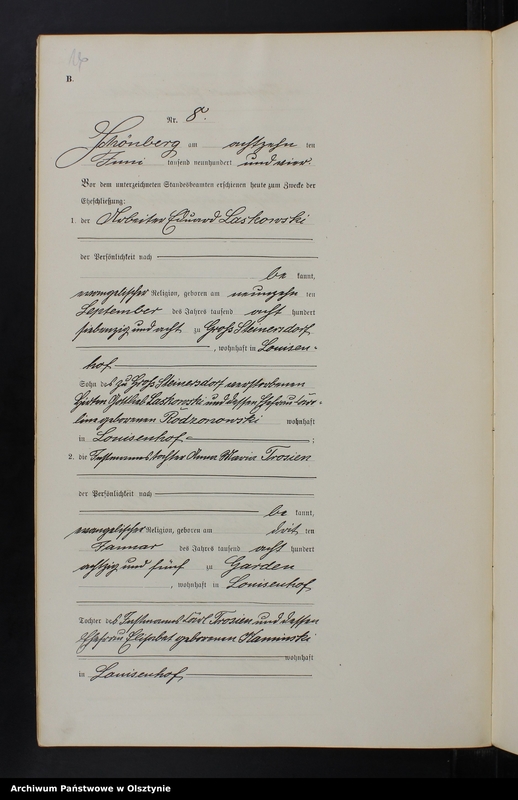 B.
Nr. 8.
Schönberg am achtzehn ten
Juni tausend neunhundert und vier.
Vor dem unterzeichneten Standesbeamten erschienen heute zum Zwecke der
Eheschließung:
1. der Arbeiter Eduard Laskowski
der Persönlichkeit nach
be kannt,
evangelischer Religion, geboren am neunzehn ten
September des Jahres tausend acht hundert
siebenzig und acht zu Groß Steinersdorf
, wohnhaft in Louisen-
hof
Sohn des zu Groß Steinersdorf verstorbenen
Hirten Gottlieb Laskowski und dessen Ehefrau
geborenen Rodzonowski wohnhaft
in Louisenhof ;
2. die Instmannstochter Anna Maria Trosien
der Persönlichkeit nach
be kannt,
evangelischer Religion, geboren am drit ten
Januar des Jahres tausend acht hundert
achtzig und fünf zu Garden
, wohnhaft in Louisenhof
Tochter des Instmanns Carl Trosien und dessen
Ehefrau Elisabet geborenen Kaminski
wohnhaft
in Louisenhof
Archiwum Państwowe w Olsztynie